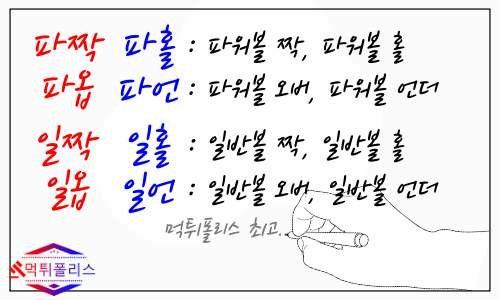 파짝 파홀 : 파워볼 짝, 파워볼 홀
파옵 파언 : 파워볼 오버, 파워볼 언더
일짝 일홀 : 일반볼 짝, 일반볼 홀
일옵 일언 : 일반볼 오버, 일반볼 언더
먹튀폴리스 최고.
먹튀폴리스